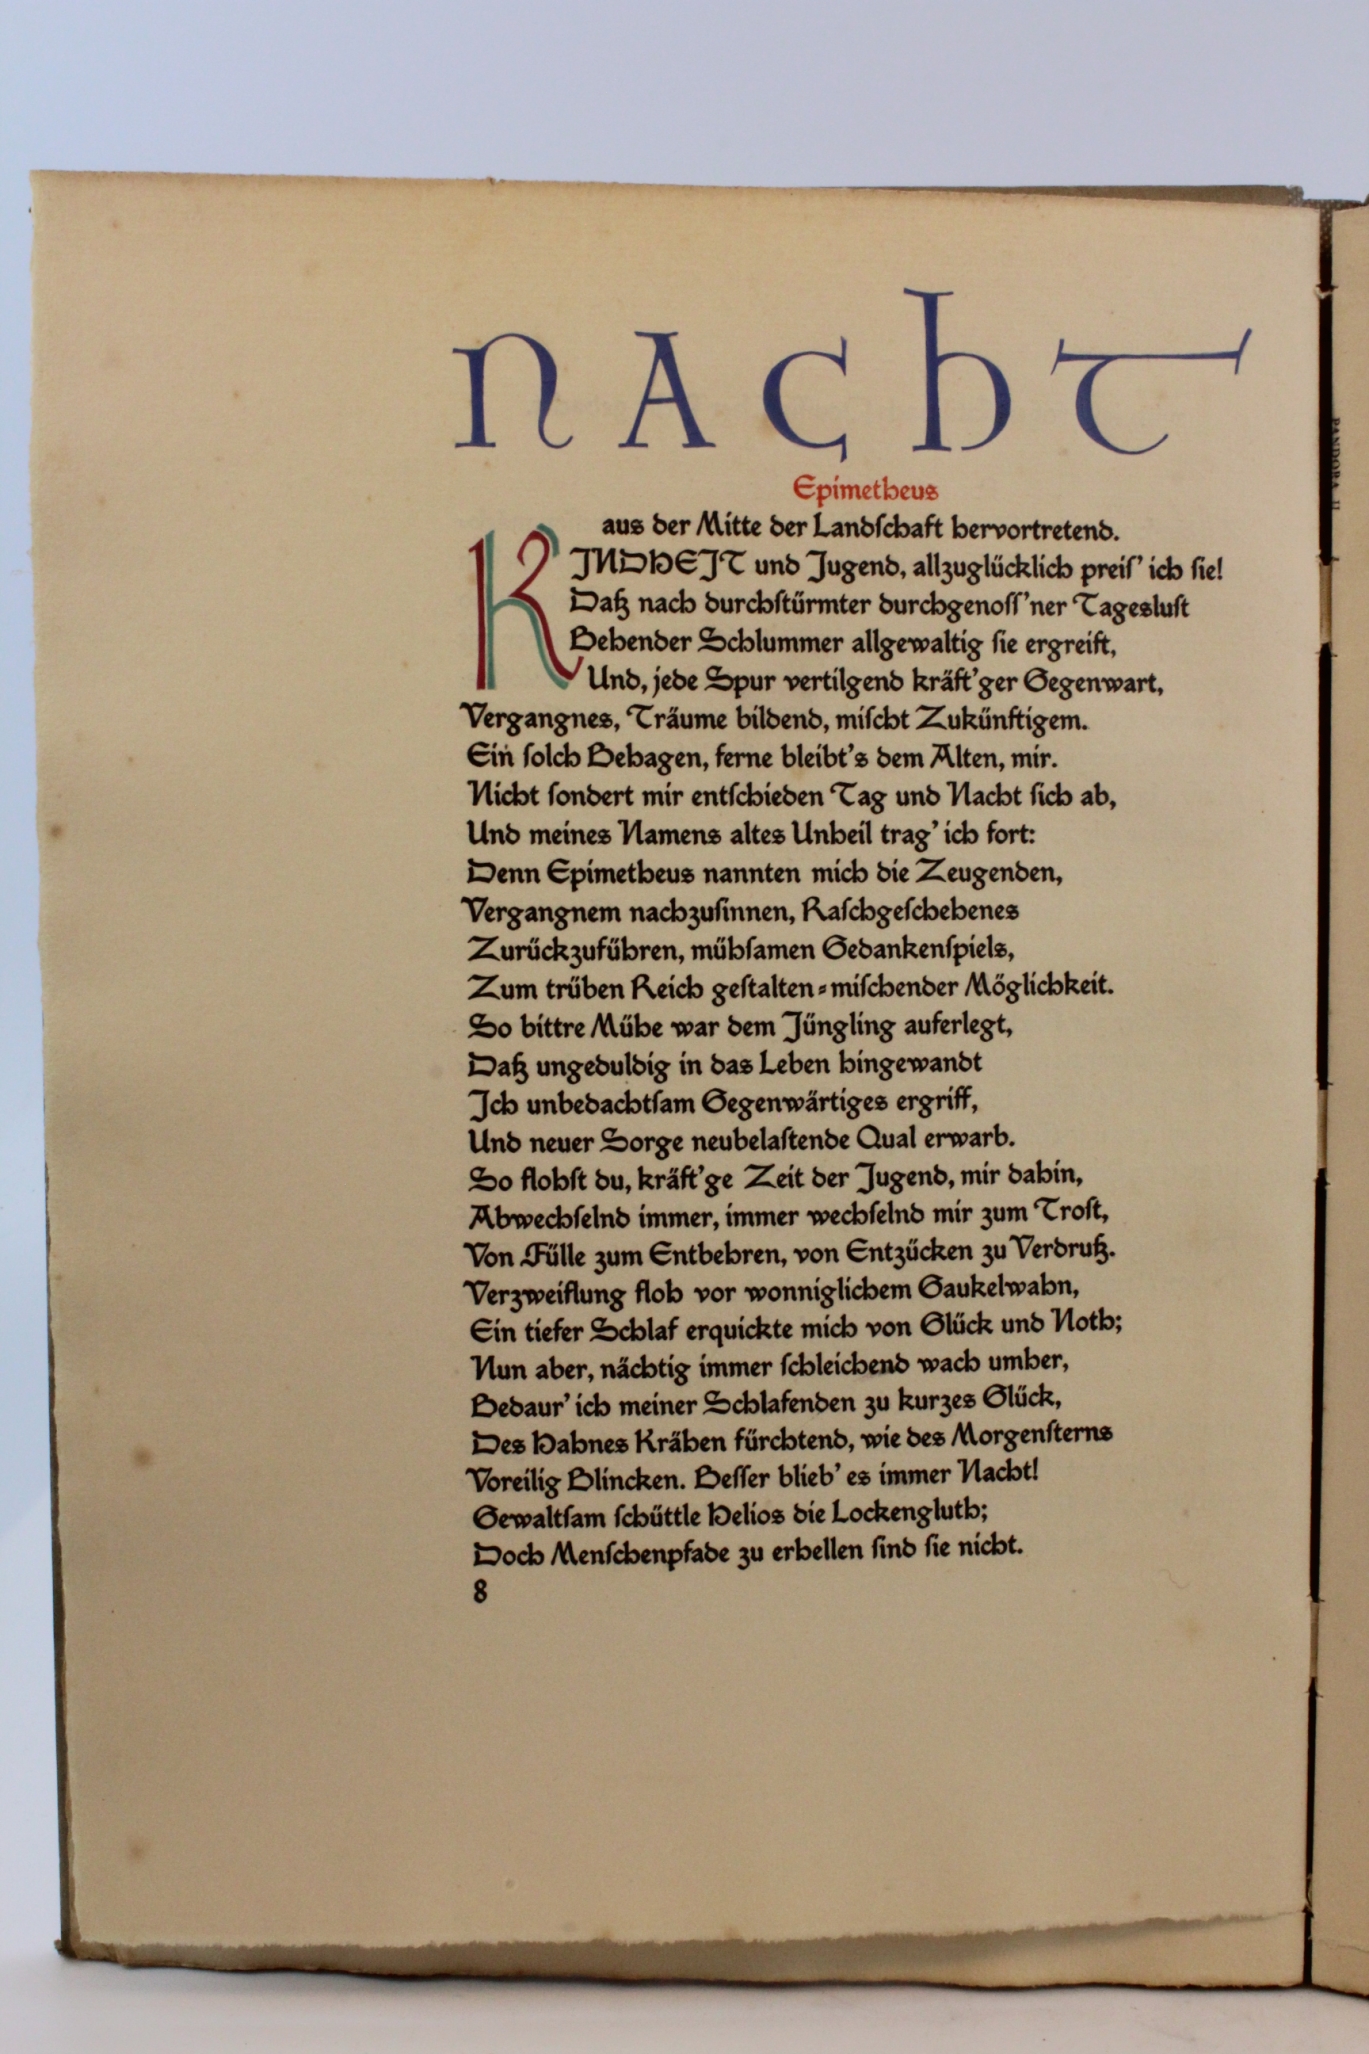 NACHT
Epimetheus
aus der Mitte der Landſchaft hervortretend.
KINDHEIT und Jugend, allzuglücklich preiſ’ ich ſie!
Daß nach durchſtürmter durchgenoſſ’ner Tagesluſt
Behender Schlummer allgewaltig ſie ergreift,
Und, jede Spur vertilgend kräft’ger Gegenwart,
Vergangnes, Träume bildend, miſcht Zukünftigem.
Ein ſolch Behagen, ferne bleibt’s dem Alten, mir.
Nicht ſondert mir entſchieden Tag und Nacht ſich ab,
Und meines Namens altes Unheil trag’ ich fort:
Denn Epimetheus nannten mich die Zeugenden,
Vergangnem nachzuſinnen, Raſchgeſchehenes
Zurückzuführen, mühſamen Gedankenſpiels,
Zum trüben Reich geſtalten⸗miſchender Möglichkeit.
So bittre Mühe war dem Jüngling auferlegt,
Daß ungeduldig in das Leben hingewandt
Ich unbedachtſam Gegenwärtiges ergriff,
Und neuer Sorge neubelaſtende Qual erwarb.
So flohſt du, kräft’ge Zeit der Jugend, mir dahin,
Abwechſelnd immer, immer wechſelnd mir zum Troſt,
Von Fülle zum Entbehren, von Entzücken zu Verdruß.
Verzweiflung floh vor wonniglichem Gaukelwahn,
Ein tiefer Schlaf erquickte mich von Glück und Noth;
Nun aber, nächtig immer ſchleichend wach umher,
Bedaur’ ich meiner Schlafenden zu kurzes Glück,
Des Hahnes Krähen fürchtend, wie des Morgenſterns
Voreilig Blincken. Beſſer blieb’ es immer Nacht!
Gewaltſam ſchüttle Helios die Lockengluth;
Doch Menſchenpfade zu erhellen ſind ſie nicht.
8
PANDORA II